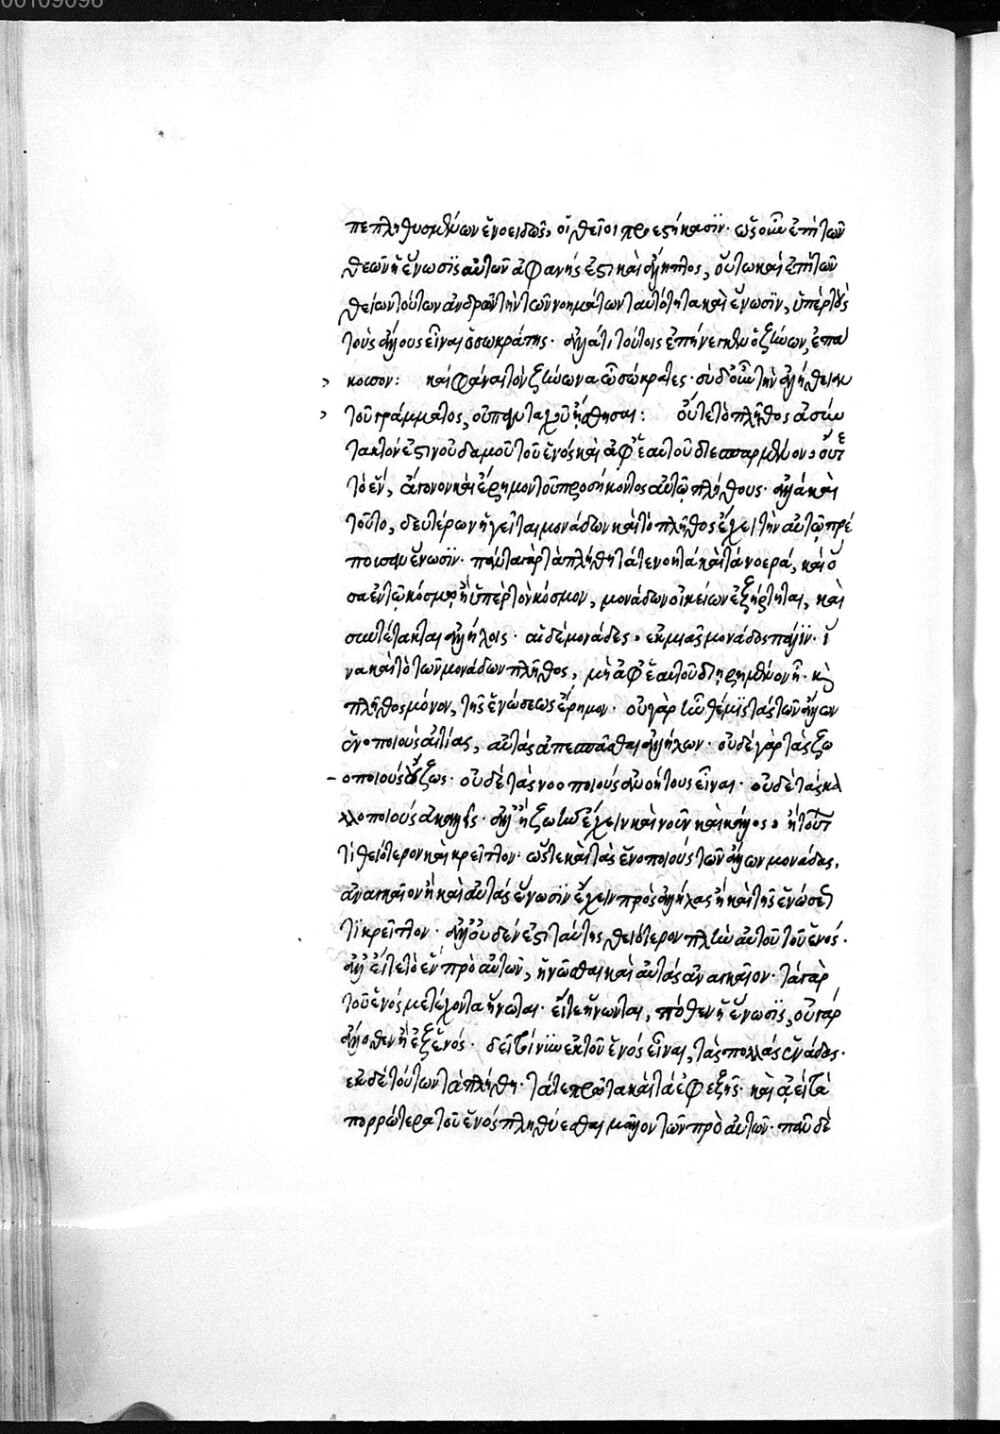 00109098
πεπληθυσμένων ἑνοειδῶς, οἱ θεῖοι προεστήκασϊν· ὡς οὖν ἐπὶ τῶν
θεῶν ἡ ἕνωσϊς αὐτῶν ἀφανής ἐστι καὶ ἄληπτος, οὕτω καὶ ἐπὶ τῶν
θείων τούτων ἀνδρῶν τὴν τῶν νοημάτων ταυτότητα καὶ ἕνωσϊν, ὑπὲρ τοὺς
τοὺς ἄλλους εἶναι ὁ σωκράτης· ἀλλά τι τούτοις ἐπήνεγκεν ὁ ζήνων, ἐπα
κουσον: καὶ φάναι τὸν ζήνωνα ὦ σώκρατες· σὺ δ' οὖν τὴν ἀλήθειαν
τοῦ γράμματος, οὐ πανταχοῦ ᾔσθησαι: οὔτε τὸ πλῆθος ἀσύν
τακτόν ἐστιν οὐδαμοῦ τοῦ ἑνός καὶ ἀφ' ἑαυτοῦ διεσπαρμένον, οὔτε
τὸ ἕν, ἄγονον καὶ ἔρημον τοῦ προσήκοντος αὐτῷ πλήθους· ἀλλὰ καὶ
τοῦτο, δευτέρων ἡγεῖται μονάδων καὶ τὸ πλῆθος ἔχει τὴν αὐτῷ πρέ
πουσαν ἕνωσϊν· πάντα γὰρ τὰ πλήθη τά τε νοητὰ καὶ τὰ νοερά, καὶ ὅ
σα ἐν τῷ κόσμῳ ἢ ὑπὲρ τὸν κόσμον, μονάδων οἰκείων ἐξήρτηται, καὶ
συντέτακται ἀλλήλοις· αἱ δὲ μονάδες, ἐκ μιᾶς μονάδος πάλϊν· ἵ
να καὶ τὸ τῶν μονάδων πλῆθος, μὴ ἀφ' ἑαυτοῦ διῃρημένον ᾖ· καὶ
πλῆθος μόνον, τῆς ἑνώσεως ἔρημον· οὐ γὰρ ἦν θέμϊς τὰς τῶν ἄλλων
ἑνοποιοὺς αἰτίας, αὐτὰς ἀπεσπᾶσθαι ἀλλήλων· οὐδὲ γὰρ τὰς ζω
οποιοὺς ἀζώους· οὐδὲ τὰς νοοποιοὺς ἀνοήτους εἶναι· οὐδὲ τὰς κα
λλοποιοὺς ἀκαλλεῖς· ἀλλ' ἢ ζωὴν ἔχειν καὶ νοῦν καὶ κάλλος, ἢ τούτων
τι θειότερον καὶ κρεῖττον· ὥστε καὶ τὰς ἑνοποιοὺς τῶν ἄλλων μονάδας,
ἀναγκαῖον ἢ καὶ αὐτὰς ἕνωσϊν ἔχειν πρὸς ἀλλήλας ἢ καὶ τῆς ἑνώσεώς
τϊ κρεῖττον· ἀλλ' οὐδέν ἐστι ταύτης θειότερον πλὴν αὐτοῦ τοῦ ἑνός·
ἀλλ' εἴτε τὸ ἓν πρὸ αὐτῶν, ἡνῶσθαι καὶ αὐτὰς ἀναγκαῖον· τὰ γὰρ
τοῦ ἑνός μετέχοντα ἥνωται· εἴτε ἥνωνται, πόθεν ἡ ἕνωσϊς, οὐ γὰρ
ἄλλοθεν ἢ ἐξ ἑνός· δεῖ τοίνυν ἐκ τοῦ ἑνός εἶναι, τὰς πολλὰς ἑνάδας·
ἐκ δὲ τούτων τὰ πλήθη· τά τε πρῶτα καὶ τὰ ἐφεξῆς· καὶ ἀεὶ τὰ
πορρώτερα τοῦ ἑνός πληθύεσθαι μᾶλλον τῶν πρὸ αὐτῶν· πᾶν δὲ